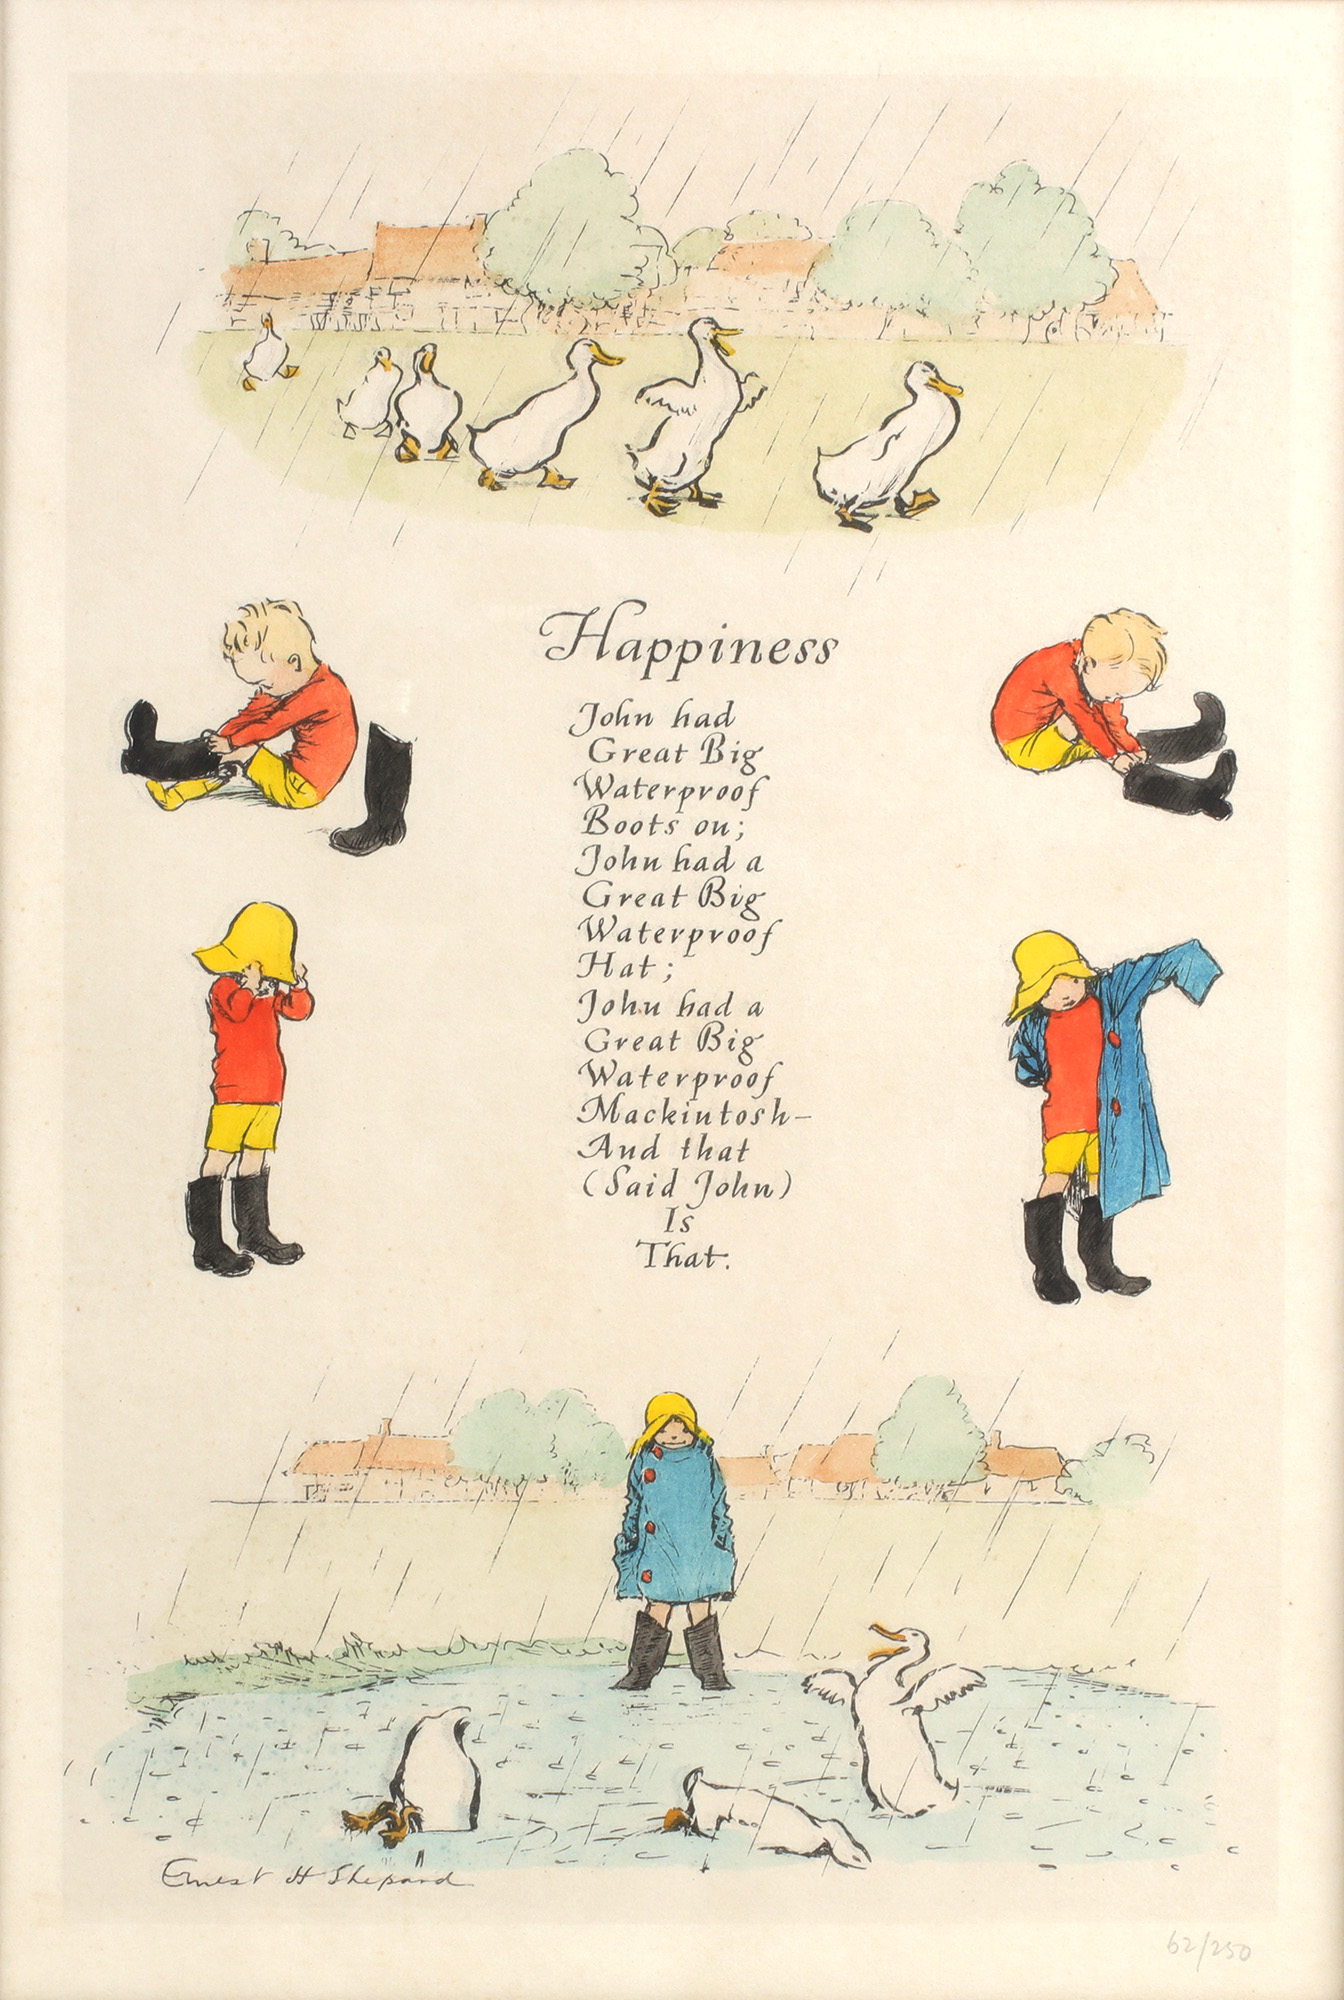 Happiness
John had
Great Big
Waterproof
Boots on;
John had a
Great Big
Waterproof
Hat;
John had a
Great Big
Waterproof
Mackintosh—
And that
(Said John)
Is
That.
Ernest H Shepard
62/250